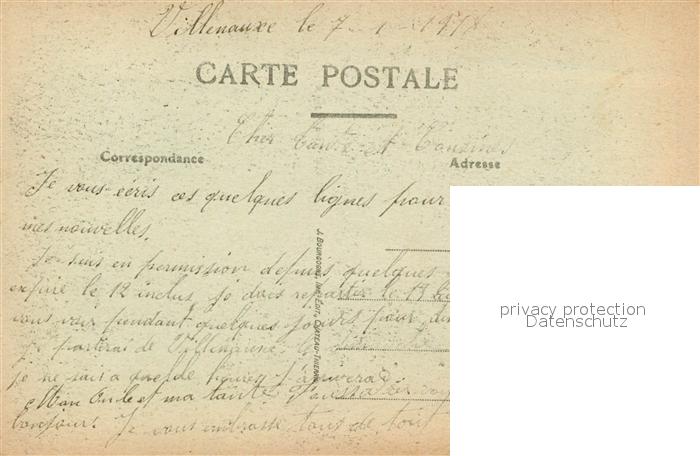 Villenauxe le 7 - 1 - 191
CARTE POSTALE
Cher Tante et Cousines
Correspondance
Adresse
Je vous écris ces quelques lignes pour
mes nouvelles.
Je suis en permission depuis quelques
expire le 12 inclus, je dois repartir le 13
vous voir pendant quelques jours pour
je partirai de Villenauxe
je ne sais a quelle heure j'arriverai
Mon Oncle et ma tante
bonjour. Je vous embrasse tous de tout
J. BOURGOGNE, IMP. ÉDIT., CHATEAU-THIERRY
privacy protection
Datenschutz